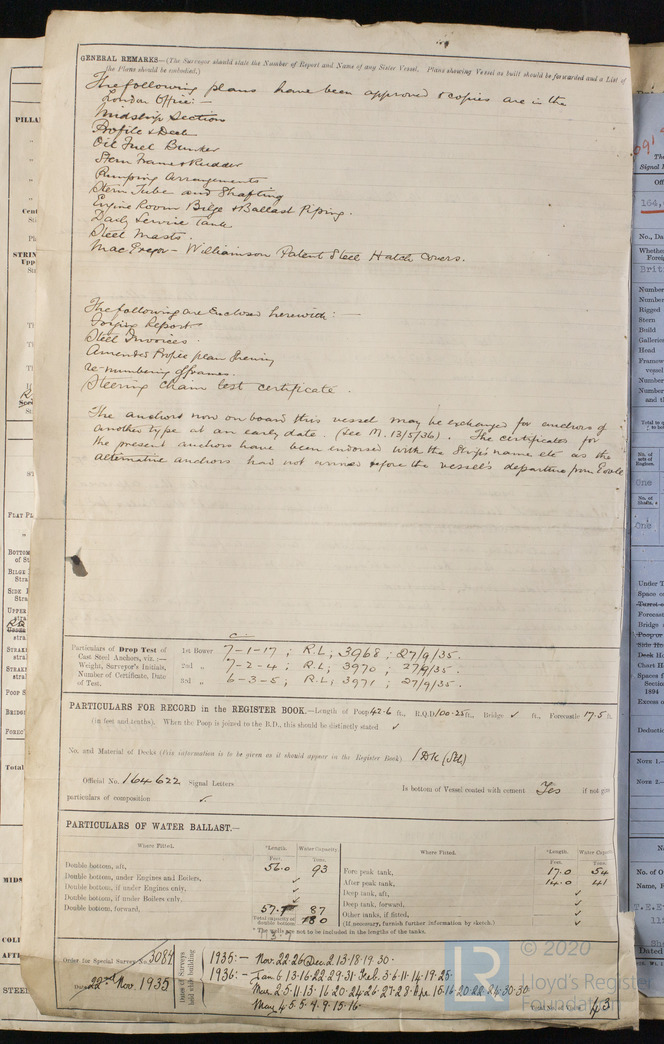 GENERAL REMARKS—(The Surveyor should state the Number of Report and Name of any Sister Vessel. Plans showing Vessel as built should be forwarded and a List of
the Plans should be embodied.)
The following plans have been approved & copies are in the
London Office:-
Midship Sections
Profile & Deck
Oil Fuel Bunker
Stern Frame & Rudder
Pumping Arrangements
Stern Tube and Shafting
Engine Room Bilge & Ballast Piping.
Daily Service Tank
Steel Masts.
MacGregor - Williamson Patent Steel Hatch Covers.
The following are Enclosed herewith:-
Forging Reports
Steel Invoices.
Amended Profile plan showing
re-numbering of frames.
Steering Chain test certificate.
The anchors now on board this vessel may be exchanged for anchors of
another type at an early date. (See M. 13/5/36). The certificates for
the present anchors have been endorsed with the Ship's name etc as the
alternative anchors had not arrived before the vessel's departure from Goole
Particulars of Drop Test of
Cast Steel Anchors, viz.:—
Weight, Surveyor's Initials,
Number of Certificate, Date
of Test.
1st Bower 7-1-17; R.L; 3968; 27/9/35.
2nd „ 7-2-4; R.L; 3970; 27/9/35.
3rd „ 6-3-5; R.L; 3971; 27/9/35.
PARTICULARS FOR RECORD in the REGISTER BOOK.—Length of Poop 42.6 ft., R.Q.D. 100.25 ft., Bridge ✓ ft., Forecastle 17.5 ft.
(in feet and tenths). When the Poop is joined to the B.D., this should be distinctly stated ✓
No. and Material of Decks (this information is to be given as it should appear in the Register Book) 1 Dk (Stl)
Official No. 164622 Signal Letters Is bottom of Vessel coated with cement Yes if not give
particulars of composition ✓
PARTICULARS OF WATER BALLAST.—
Where Fitted. *Length. Water Capacity Where Fitted. *Length. Water Capacity
Feet. Tons. Feet. Tons.
Double bottom, aft, 56.0 93 Fore peak tank, 17.0 54
Double bottom, under Engines and Boilers, ✓ After peak tank, 14.0 41
Double bottom, if under Engines only, ✓ Deep tank, aft, ✓
Double bottom, if under Boilers only, ✓ Deep tank, forward, ✓
Double bottom, forward, 57.7 87 Other tanks, if fitted, ✓
Total capacity of double bottom 180 (If necessary, furnish further information by sketch.) ✓
* The wells are not to be included in the lengths of the tanks.
Order for Special Survey No. 3084
Date 22nd Nov. 1935
Dates of Surveys held while building
1935:- Nov. 22 26 Dec. 2 13 18 19 30
1936:- Jan 6 13 16 22 29 31 Feb. 3 6 11 14 19 25
Mar 2 5 11 13 16 20 24 26 27 28 Apr. 15 16 20 22 24 30 30
May 4 5 5 9 9 15 16
Total No. of Visits 43
© 2020
LR
Lloyd's Register
Foundation